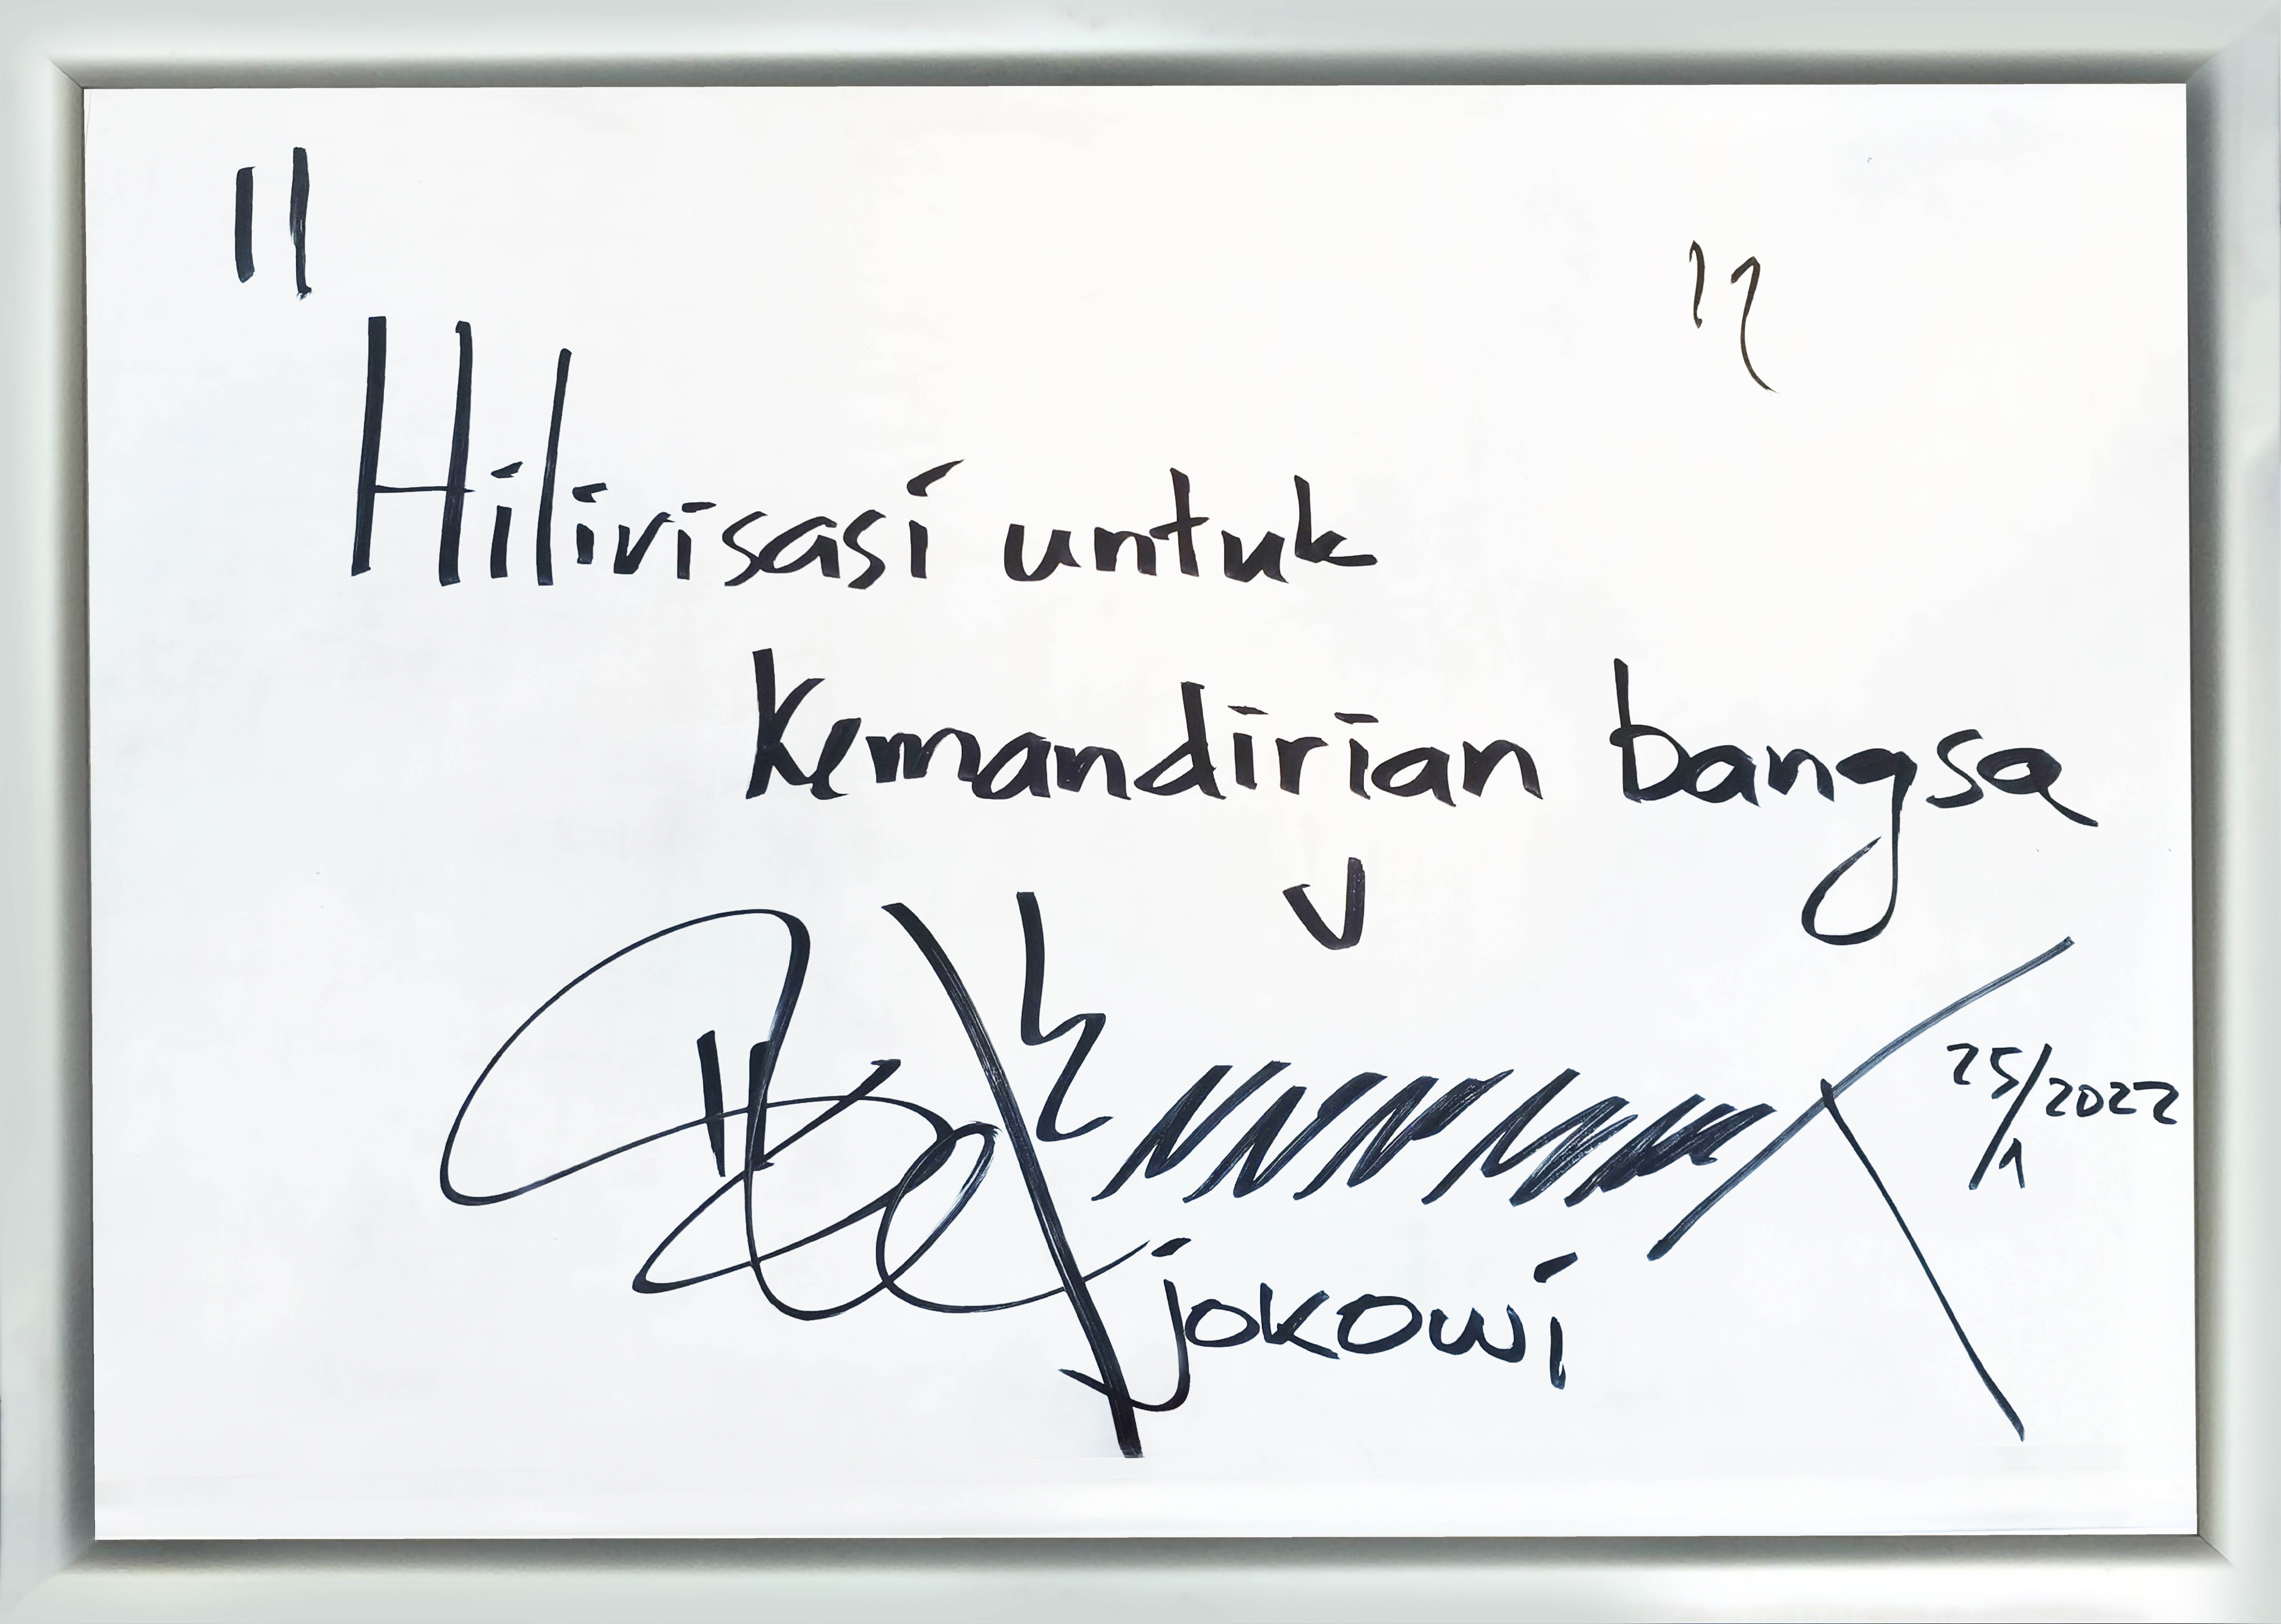 "Hilirisasi untuk
Kemandirian bangsa"
25/1/2022
jokowi